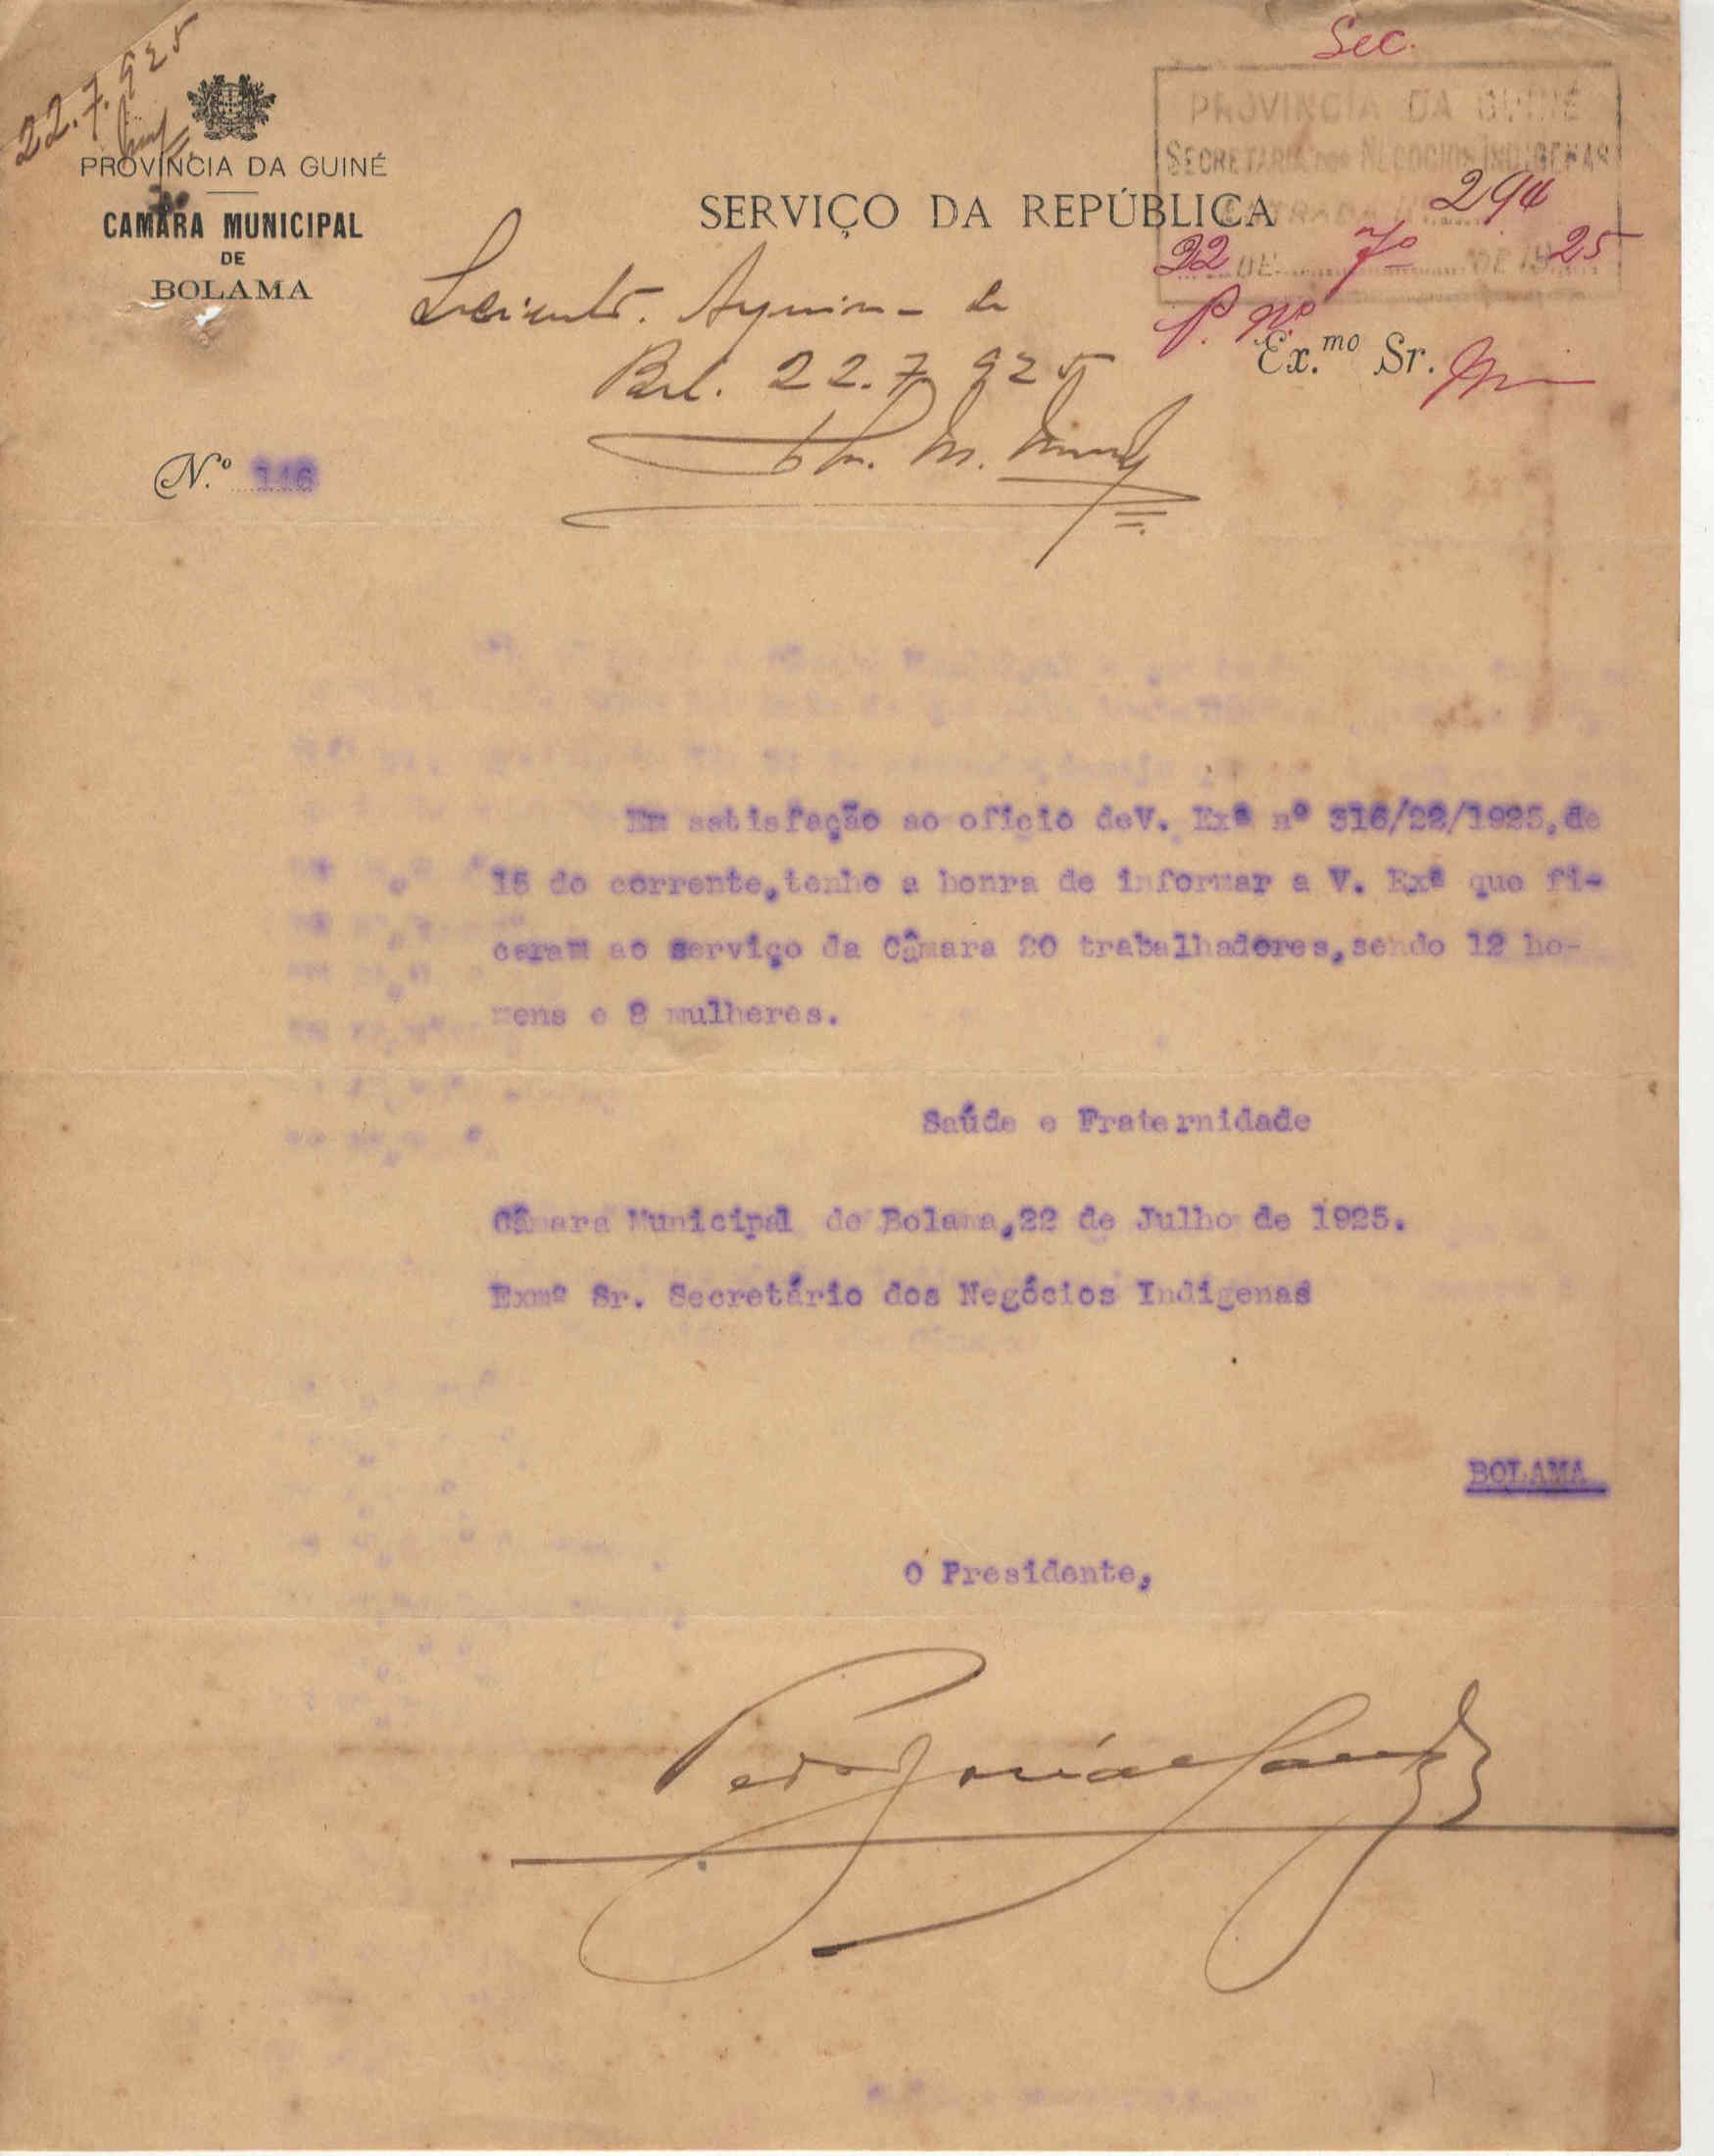 22.7.925
Sec.
PROVÍNCIA DA GUINÉ
CAMARA MUNICIPAL
DE
BOLAMA
PROVINCIA DA GUINÉ
SECRETARIA DOS NEGOCIOS INDIGENAS
ENTRADA N.º 294
22 DE 7º DE 1925
SERVIÇO DA REPÚBLICA
P. nº
Ex.mo Sr.
Bol. 22.7.925
N.º 146
Em satisfação ao oficio deV. Exª nº 316/22/1925,de
15 do corrente,tenho a honra de informar a V. Exª que fi-
caram ao serviço da Câmara 20 trabalhadores,sendo 12 ho-
mens e 8 mulheres.
Saúde e Fraternidade
Câmara Municipal de Bolama,22 de Julho de 1925.
Exmº Sr. Secretário dos Negócios Indigenas
BOLAMA
O Presidente,